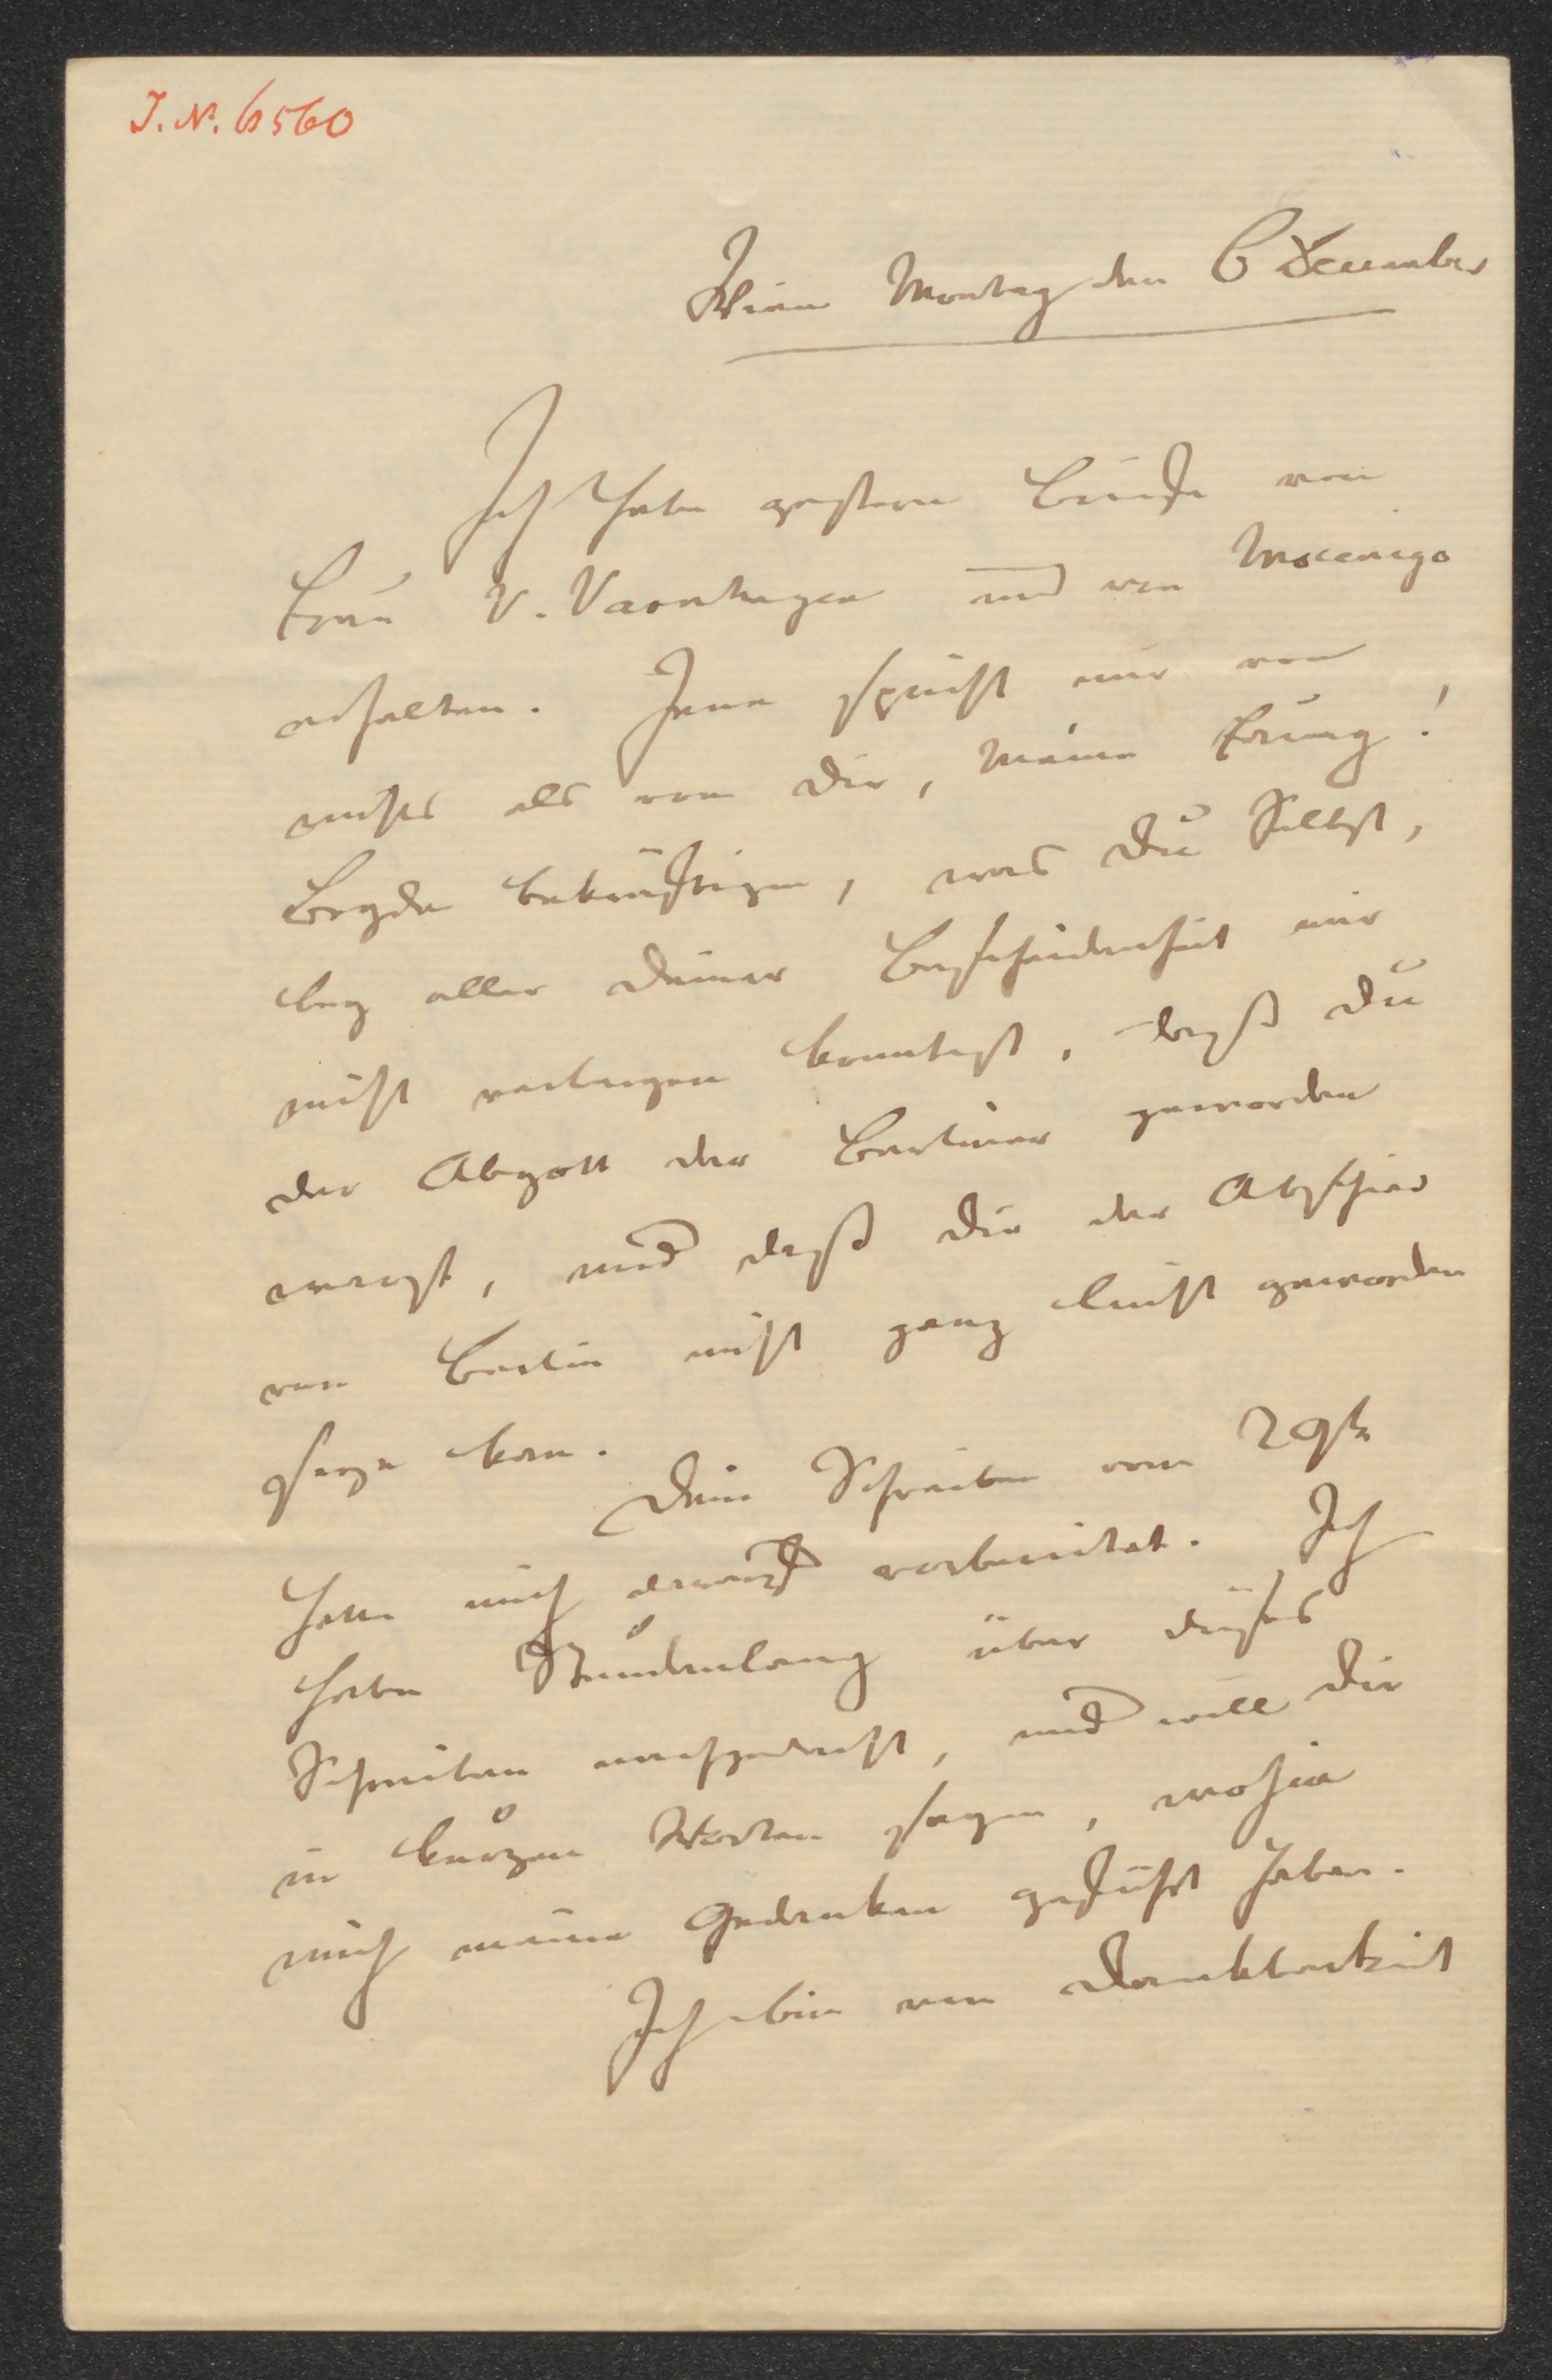 J. N. 6560
Wien Montag den 6 December
Ich habe gestern Briefe von
Frau V. Varnhagen und von Mocenigo
erhalten. Jene spricht mir von
nichts als von Dir, meine Fanny!
Beyde bekräftigen, was Du Selbst,
bey aller Deiner Bescheidenheit mir
nicht verbergen konntest, daß Du
der Abgott der Berliner geworden
warst, und daß Dir der Abschied
von Berlin nicht ganz leicht geworden
seyn kan.
Dein Schreiben vom 29t
hatte mich darauf vorbereitet. Ich
habe Stundenlang über dieses
Schreiben nachgedacht, und will Dir
in kurzen Worten sagen, wohin
mich meine Gedanken geführt haben.
Ich bin von Dankbarkeit